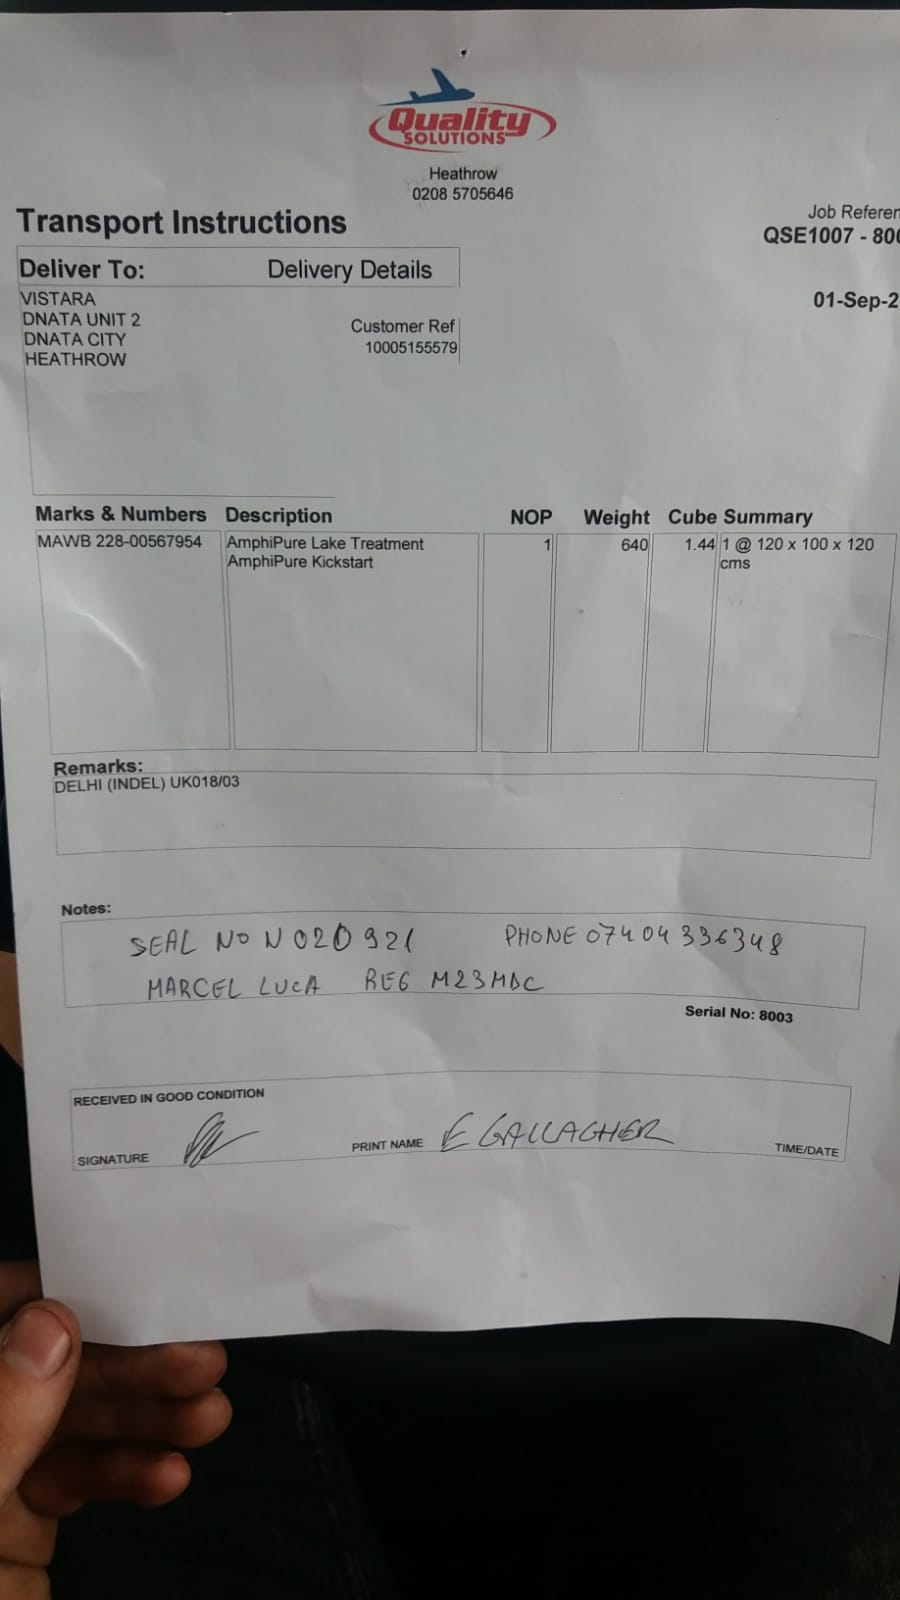 Quality
SOLUTIONS
Heathrow
0208 5705646
Transport Instructions
Job Referen
QSE1007 - 800
Deliver To: Delivery Details
01-Sep-2
VISTARA
DNATA UNIT 2
DNATA CITY
HEATHROW
Customer Ref
10005155579
Marks & Numbers Description NOP Weight Cube Summary
MAWB 228-00567954 AmphiPure Lake Treatment 1 640 1.44 1 @ 120 x 100 x 120
AmphiPure Kickstart cms
Remarks:
DELHI (INDEL) UK018/03
Notes:
SEAL NO N020921 PHONE 07404336348
MARCEL LUCA REG M23MDC
Serial No: 8003
RECEIVED IN GOOD CONDITION
SIGNATURE PRINT NAME E GALLAGHER TIME/DATE